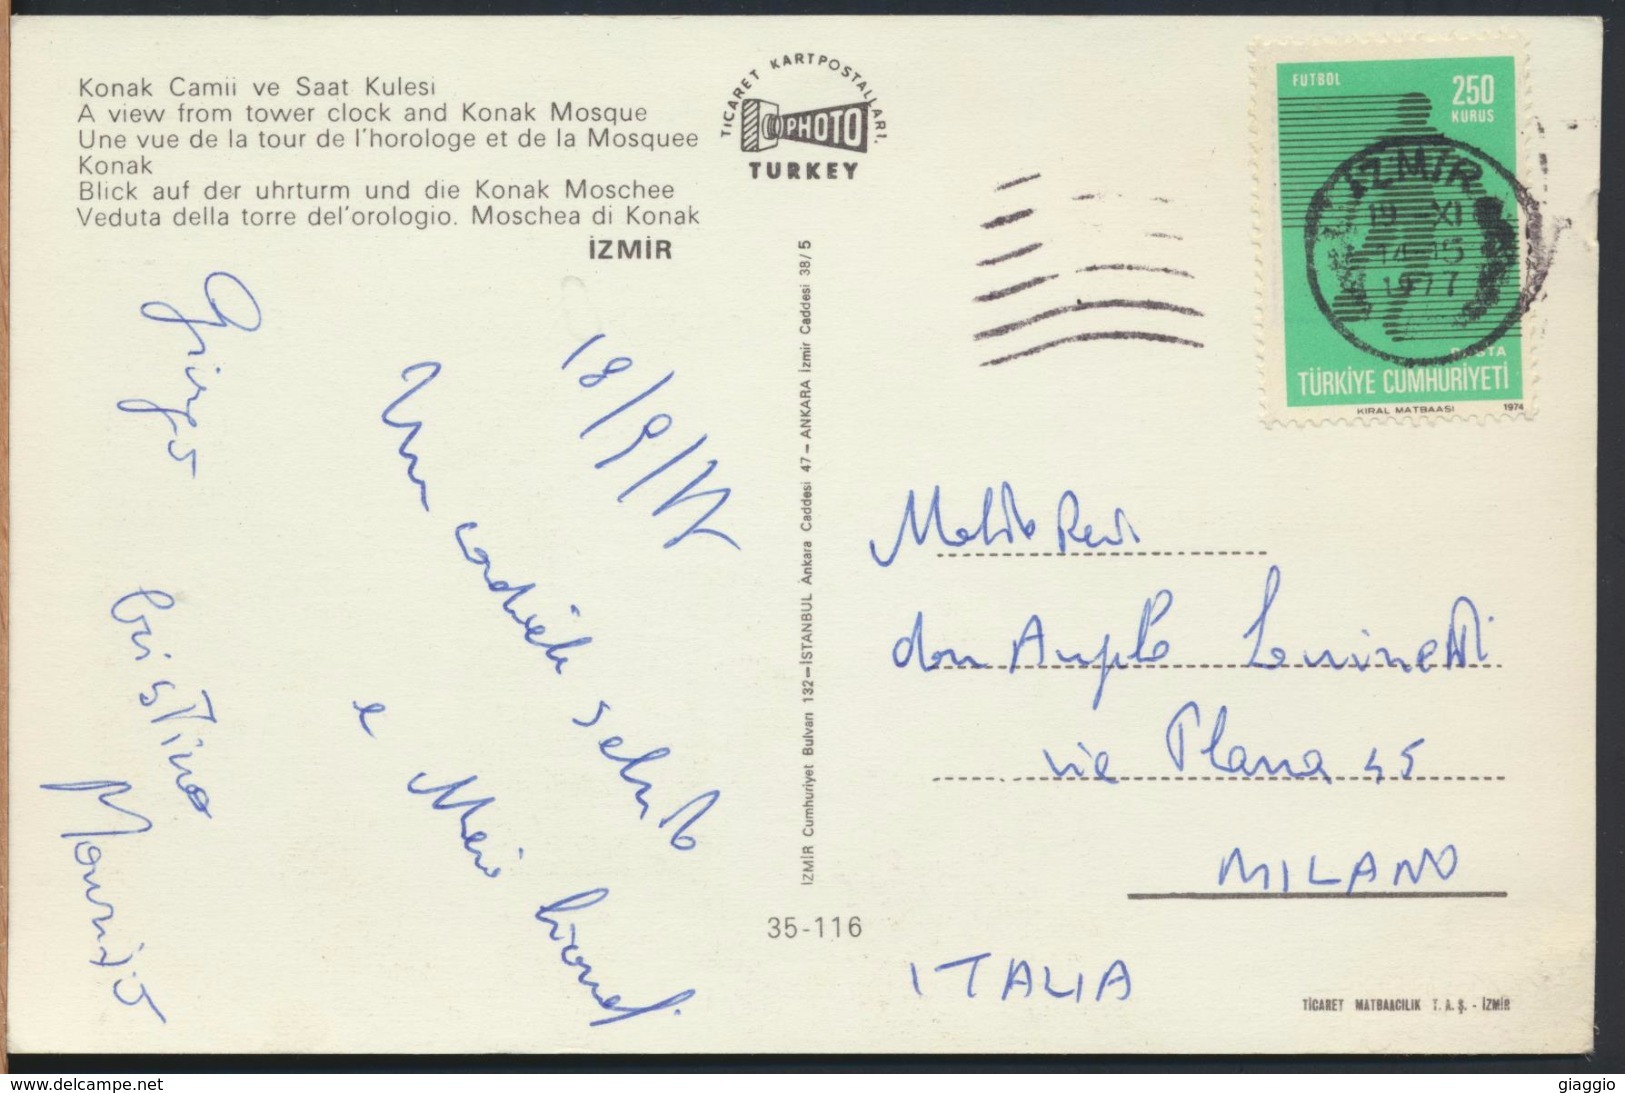 Konak Camii ve Saat Kulesi
A view from tower clock and Konak Mosque
Une vue de la tour de l'horologe et de la Mosquee
Konak
Blick auf der uhrturm und die Konak Moschee
Veduta della torre del'orologio. Moschea di Konak
İZMİR
TİCARET KARTPOSTALLARI.
PHOTO
TURKEY
FUTBOL
250
KURUŞ
İZMİR
19 XI
14-15
1977
POSTA
TÜRKİYE CUMHURİYETİ
KIRAL MATBAASI 1974
18/9/77
Un cordiale saluto
e
Cristina
Maurizio
İZMİR Cumhuriyet Bulvarı 132-İSTANBUL Ankara Caddesi 47- ANKARA İzmir Caddesi 38/5
35-116
don Angelo
via Plana 45
MILANO
ITALIA
TİCARET MATBAACILIK T. A. Ş. - İZMİR
www.delcampe.net
giaggio